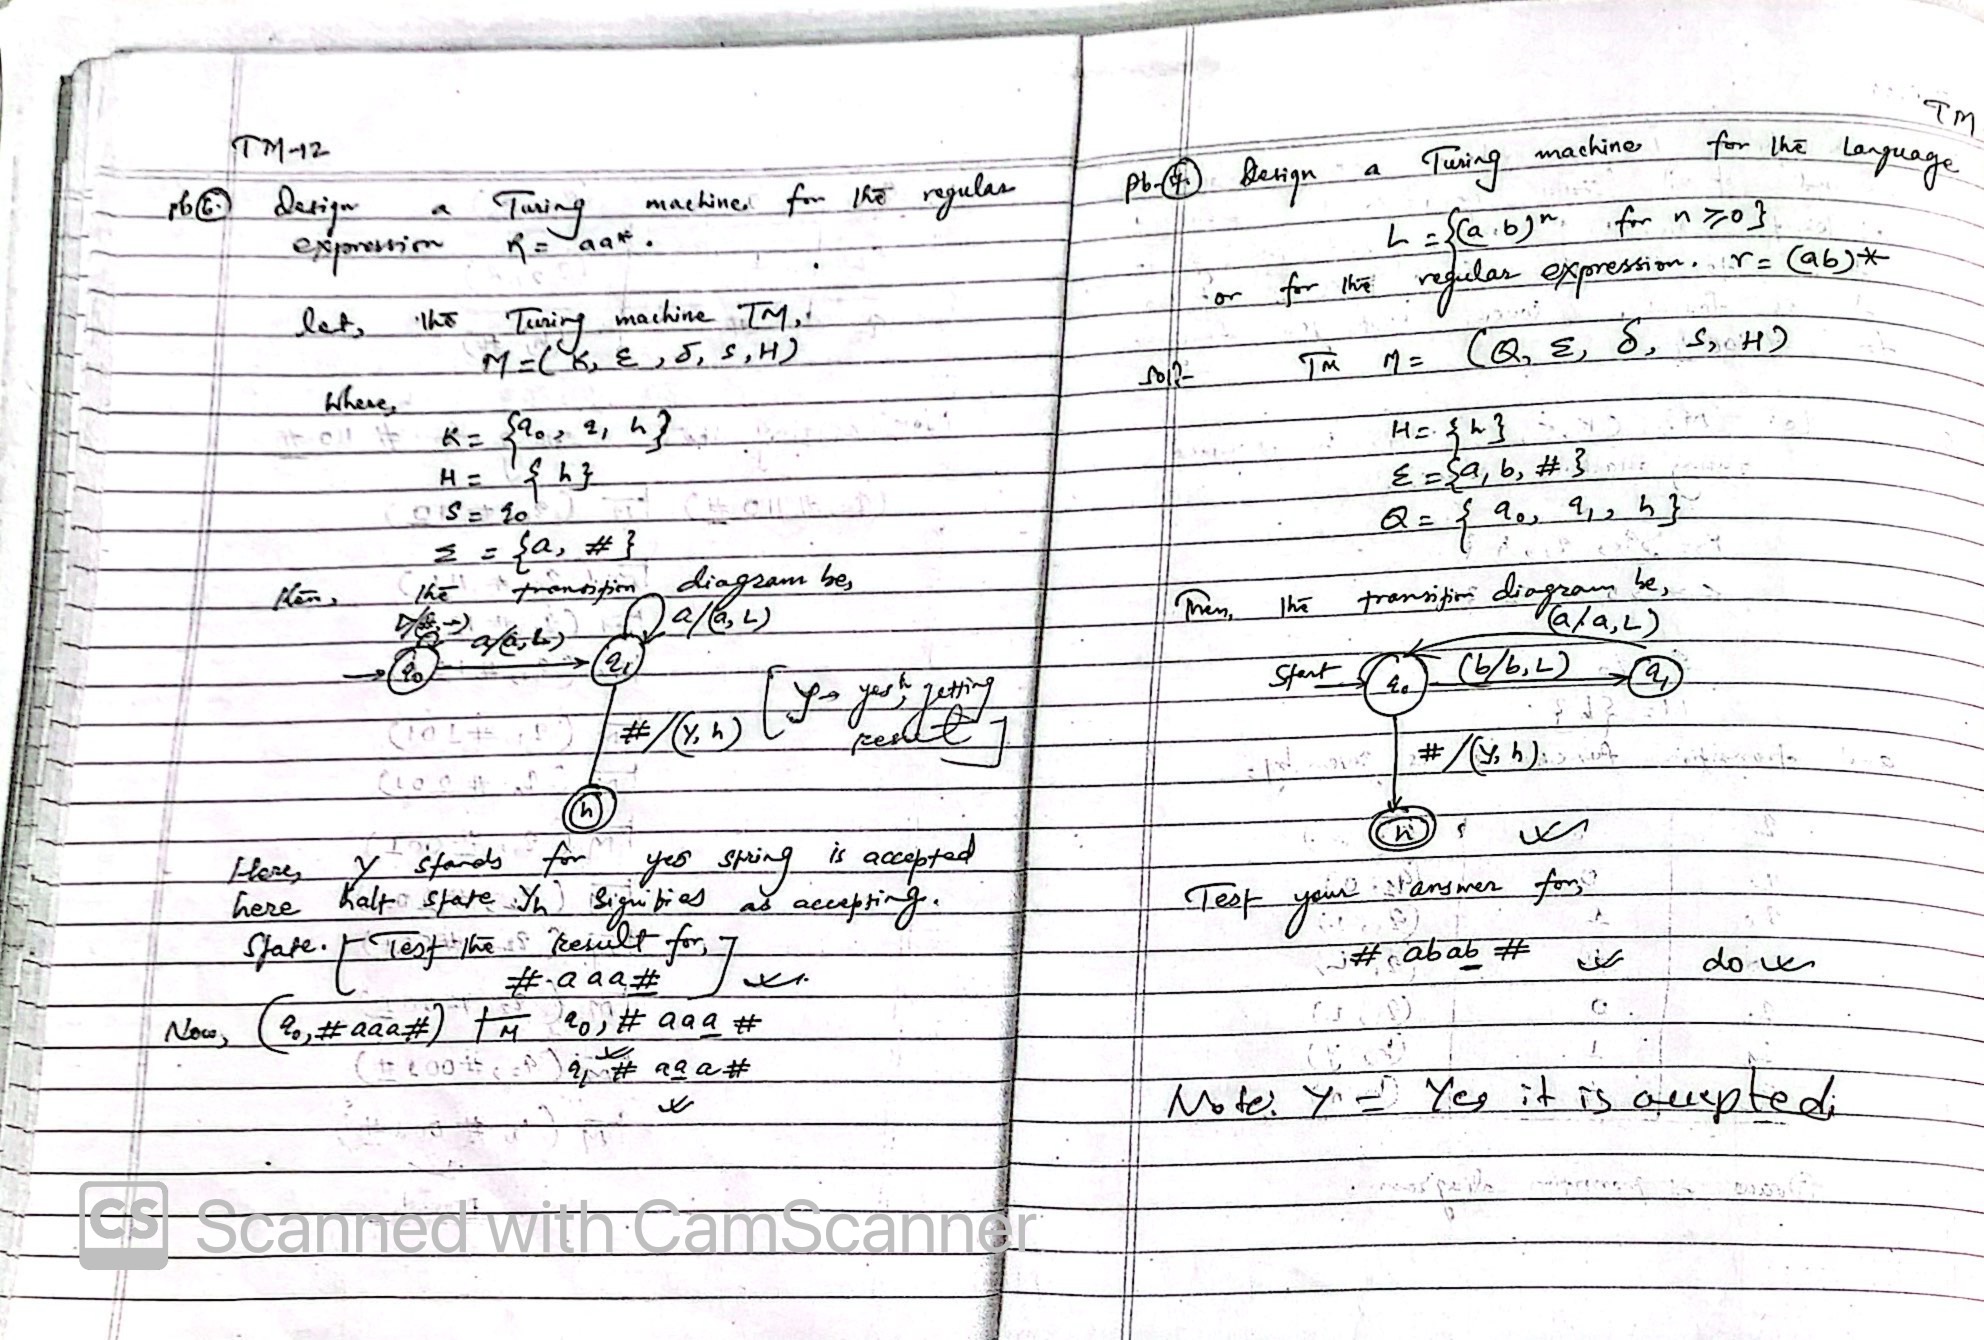 TM-12
pb 6. Design a Turing machine for the regular
expression R = aa*.
let, the Turing machine TM,
M = (K, Σ, δ, s, H)
Where,
K = {q0, q1 h}
H = {h}
S = q0
Σ = {a, #}
then, the transition diagram be,
a/(a, L)
a/(a, L)
q0
q1
#/(Y, h) [Y→ yes, getting
result]
h
Here, Y stands for yes string is accepted
here halt state Yh signifies as accepting.
State. [Test the result for,
# aaa#]
Now, (q0, # aaa#) ⊢M q0, # aaa #
q1 # aaa #
TM
Pb-7. Design a Turing machine for the Language
L = {(a.b)^n for n ≥ 0}
or for the regular expression. r = (ab)*
Sol:- TM M = (Q, Σ, δ, S, H)
H = {h}
Σ = {a, b, #}
Q = {q0, q1, h}
Then, the transition diagram be,
(a/a, L)
Start q0 (b/b, L) q1
#/(Y, h)
h
Test your answer for,
# abab # do
Note: Y = Yes it is accepted.
CS Scanned with CamScanner